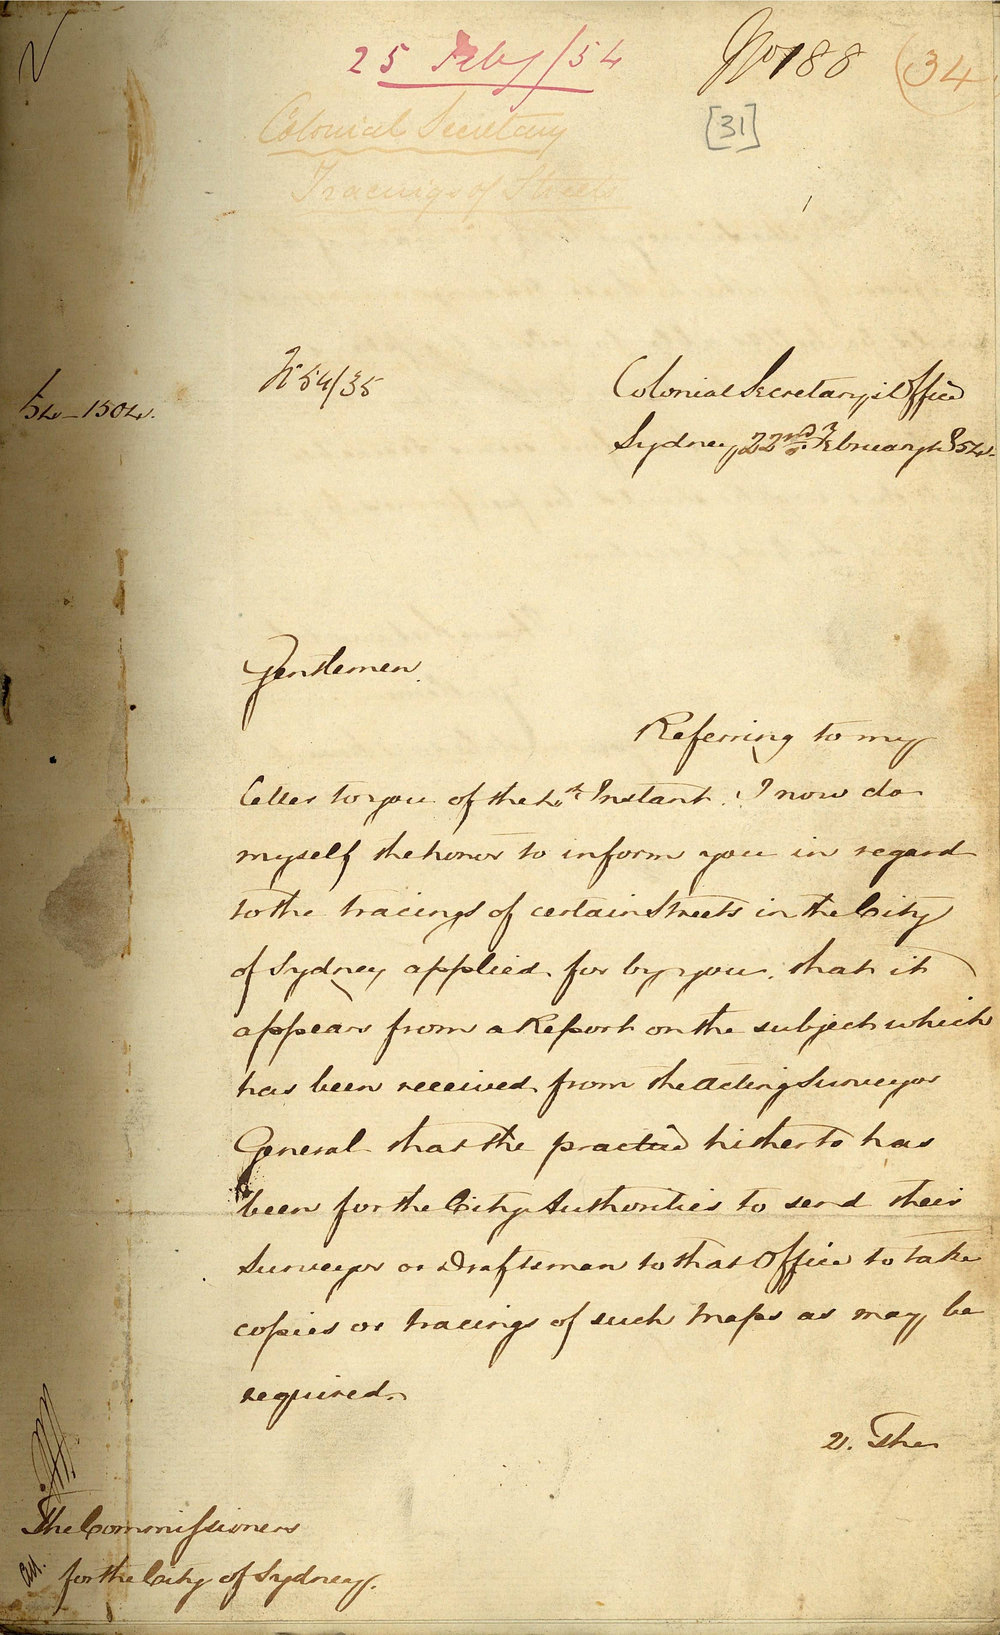 25 Feby/54
No 188
(34)
[31]
Colonial Secretary
Tracings of Streets
No 54/35
54-1504.
Colonial Secretary's Office
Sydney, 22nd February 1854.
Gentlemen.
Referring to my
letter to you of the Instant. I now do
myself the honor to inform you in regard
to the tracings of certain Streets in the City
of Sydney applied for by you, that it
appears from a Report on the subject which
has been received from the Acting Surveyor
General that the practice hitherto has
been for the City Authorities to send their
Surveyor or Draftsman to that Office to take
copies or tracings of such Maps as may be
required.
2. The
The Commissioners
for the City of Sydney.